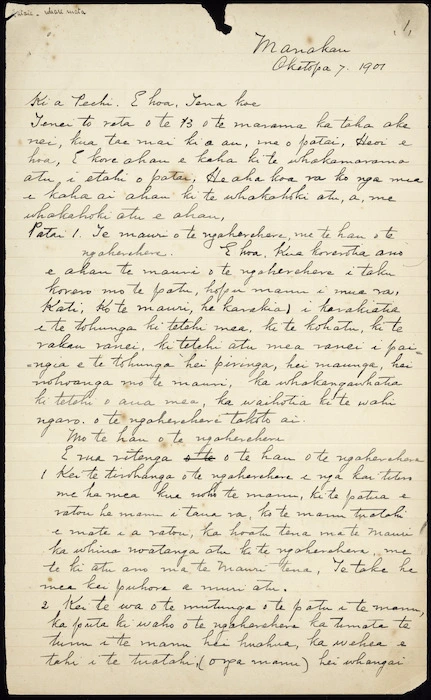 1
Manakau
Oketopa 7. 1907
Ki a Pechi. E hoa, Tena koe
Tenei to reta o te 13 o te marama ka taha ake
nei, kua tae mai ki a au, me o patai, Heoi e
hoa, E kore ahau e kaha ki te whakamarama
atu i etahi o patai, He aha koa ra ko nga mea
e kaha ai ahau ki te whakahoki atu, a, me
whakahoki atu e ahau,
Patai 1. Te mauri o te ngaherehere, me te hau o te
ngaherehere. E hoa, Kua korerotia ano
e ahau te mauri o te ngaherehere i taku
korero mo te patu, hopu manu i mua ra,
Kati, Ko te mauri, he karakia, i karakiatia
i te tohunga ki tetehi mea, ki te kohatu, ki te
rakau ranei, ki tetehi atu mea ranei i pai-
=ngia e te tohunga hei piringa, hei maunga, hei
nohoanga mo te mauri, ka whakangawhatia
ki tetehi o aua mea, ka waihotia ki te wahi
ngaro, o te ngaherehere takoto ai.
Mo te hau o te ngaherehere
E rua ritenga o te o te hau o te ngaherehere
1 Kei te tirohanga o te ngaherehere i nga kai titiro
me ha mea kua noho te manu, ki te patua e
ratou he manu i taua ra, ko te manu tuatahi
e mate i a ratou, ka hoatu tena ma te Mauri
ka whiua noatanga atu ki te ngaherehere, me
te ki atu ano ma te Mauri tena, Te take he
mea kei puhore a muri atu.
2 Kei te wa o te mutunga o te patu i te manu,
ka puta ki waho o te ngaherehere ka timata te
tunu i te manu hei huahua, ka wehea e
tahi i te tuatahi, (o nga manu) hei whangai